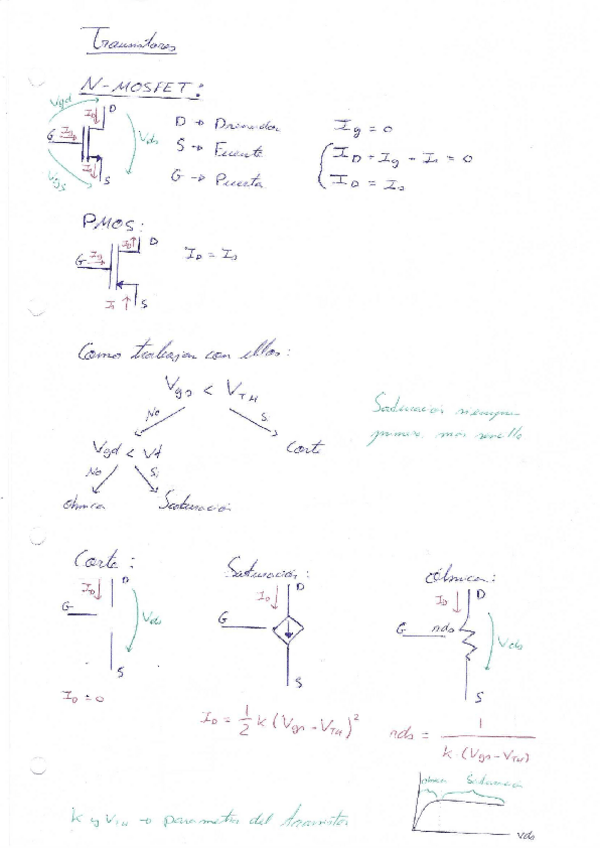 Transistores
N-MOSFET:
Vgd ID D
G Ig Vds
Vgs Is S
D → Drenador
S → Fuente
G → Puerta
Ig = 0
ID + Ig - Is = 0
ID = Is
PMOS:
ID D
G Ig
Is S
ID = Is
Como trabajan con ellos:
Vgs < VTH
No Si
Vgd < Vt Corte
No Si
óhmica Saturación
Saturación siempre
primero, más sencillo
Corte:
ID D
G Vds
S
ID = 0
Saturación:
ID D
G
S
ID = 1/2 K (Vgs - VTH)²
óhmica:
ID D
G rds Vds
S
rds = 1 / K·(Vgs - VTH)
óhmica Saturación
Vds
K y VTH → parametros del transistor